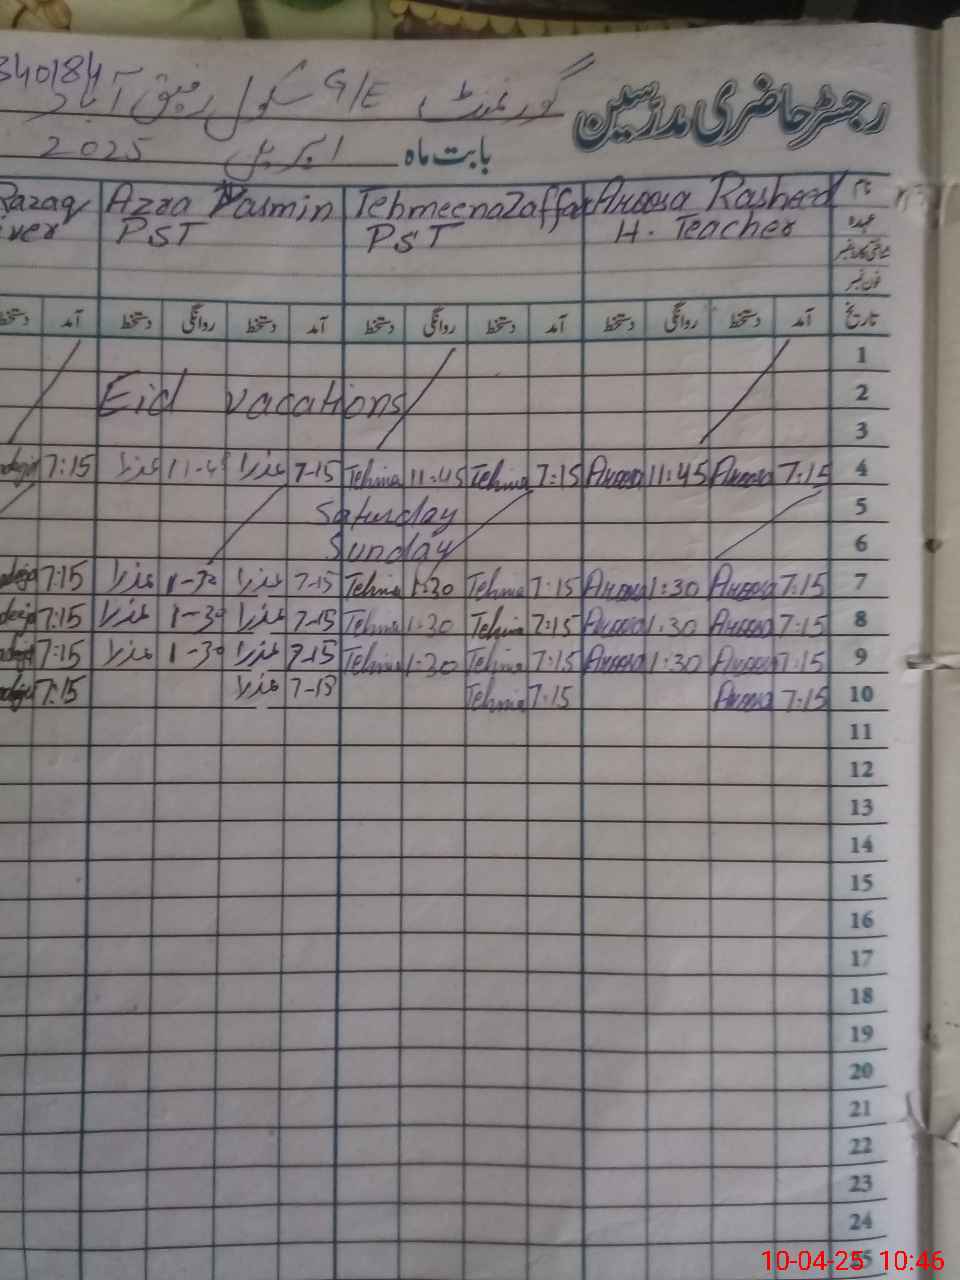 340184
گورنمنٹ G/E سکول رفیق آباد
رجسٹر حاضری مدرسین
بابت ماہ اپریل 2025
نام Aroosa Rasheed Tehmeena Zaffar Azra Yasmin Razaq
عہدہ H. Teacher PST PST
شناختی کارڈ نمبر
فون نمبر
تاریخ آمد دستخط روانگی دستخط آمد دستخط روانگی دستخط آمد دستخط روانگی دستخط آمد دستخط
1
2 Eid vacations
3
4 7:15 Aroosa 11:45 Aroosa 7:15 Tehmia 11:45 Tehmia 7-15 عذرا 11-4 عذرا 7:15
5 Saturday
6 Sunday
7 7:15 Aroosa 1:30 Aroosa 7:15 Tehmia 1:30 Tehmia 7-15 عذرا 1-30 عذرا 7:15
8 7:15 Aroosa 1:30 Aroosa 7:15 Tehmia 1:30 Tehmia 7-15 عذرا 1-30 عذرا 7:15
9 7:15 Aroosa 1:30 Aroosa 7:15 Tehmia 1:30 Tehmia 7-15 عذرا 1-30 عذرا 7:15
10 7:15 Aroosa 7:15 Tehmia 7-15 عذرا 7:15
11
12
13
14
15
16
17
18
19
20
21
22
23
24
25
10-04-25 10:46